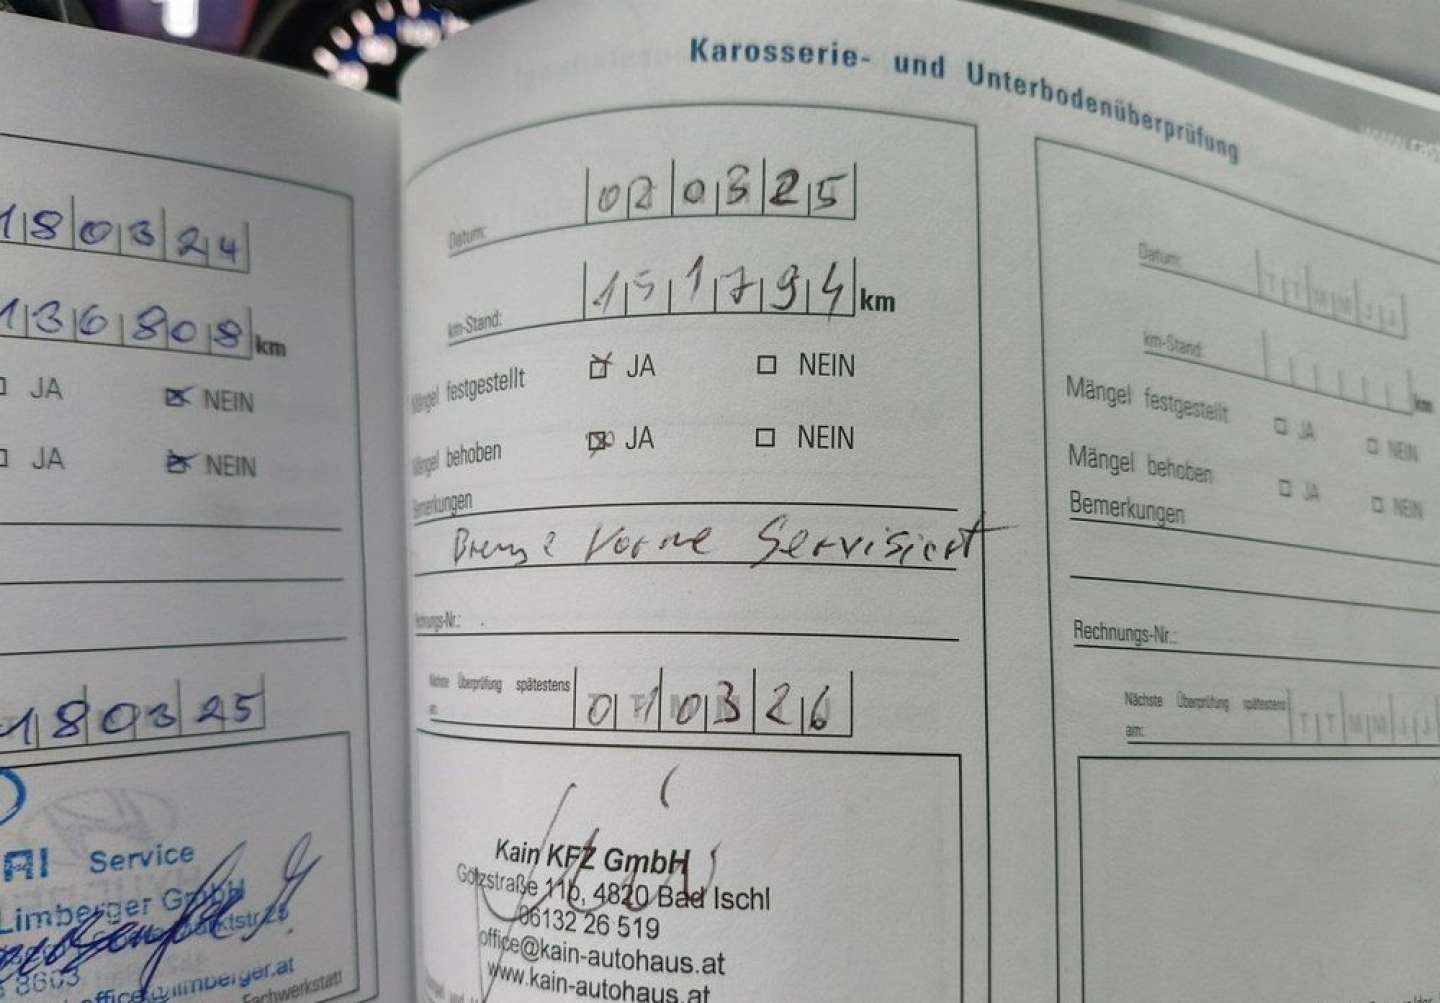 Karosserie- und Unterbodenüberprüfung
180324
136808 km
JA NEIN
JA NEIN
180325
AI Service
Limberger GmbH
office@limberger.at
Fachwerkstatt
Datum: 020325
km-Stand: 151794 km
Mängel festgestellt JA NEIN
Mängel behoben JA NEIN
Bemerkungen
Bremse Vorne Servisiert
Rechnungs-Nr.:
Nächste Überprüfung spätestens
am: 010326
Kain KFZ GmbH
Götzstraße 11b, 4820 Bad Ischl
06132 26 519
office@kain-autohaus.at
www.kain-autohaus.at
Datum: T T M M J J
km-Stand: km
Mängel festgestellt JA NEIN
Mängel behoben JA NEIN
Bemerkungen
Rechnungs-Nr.:
Nächste Überprüfung spätestens
am: T T M M J J